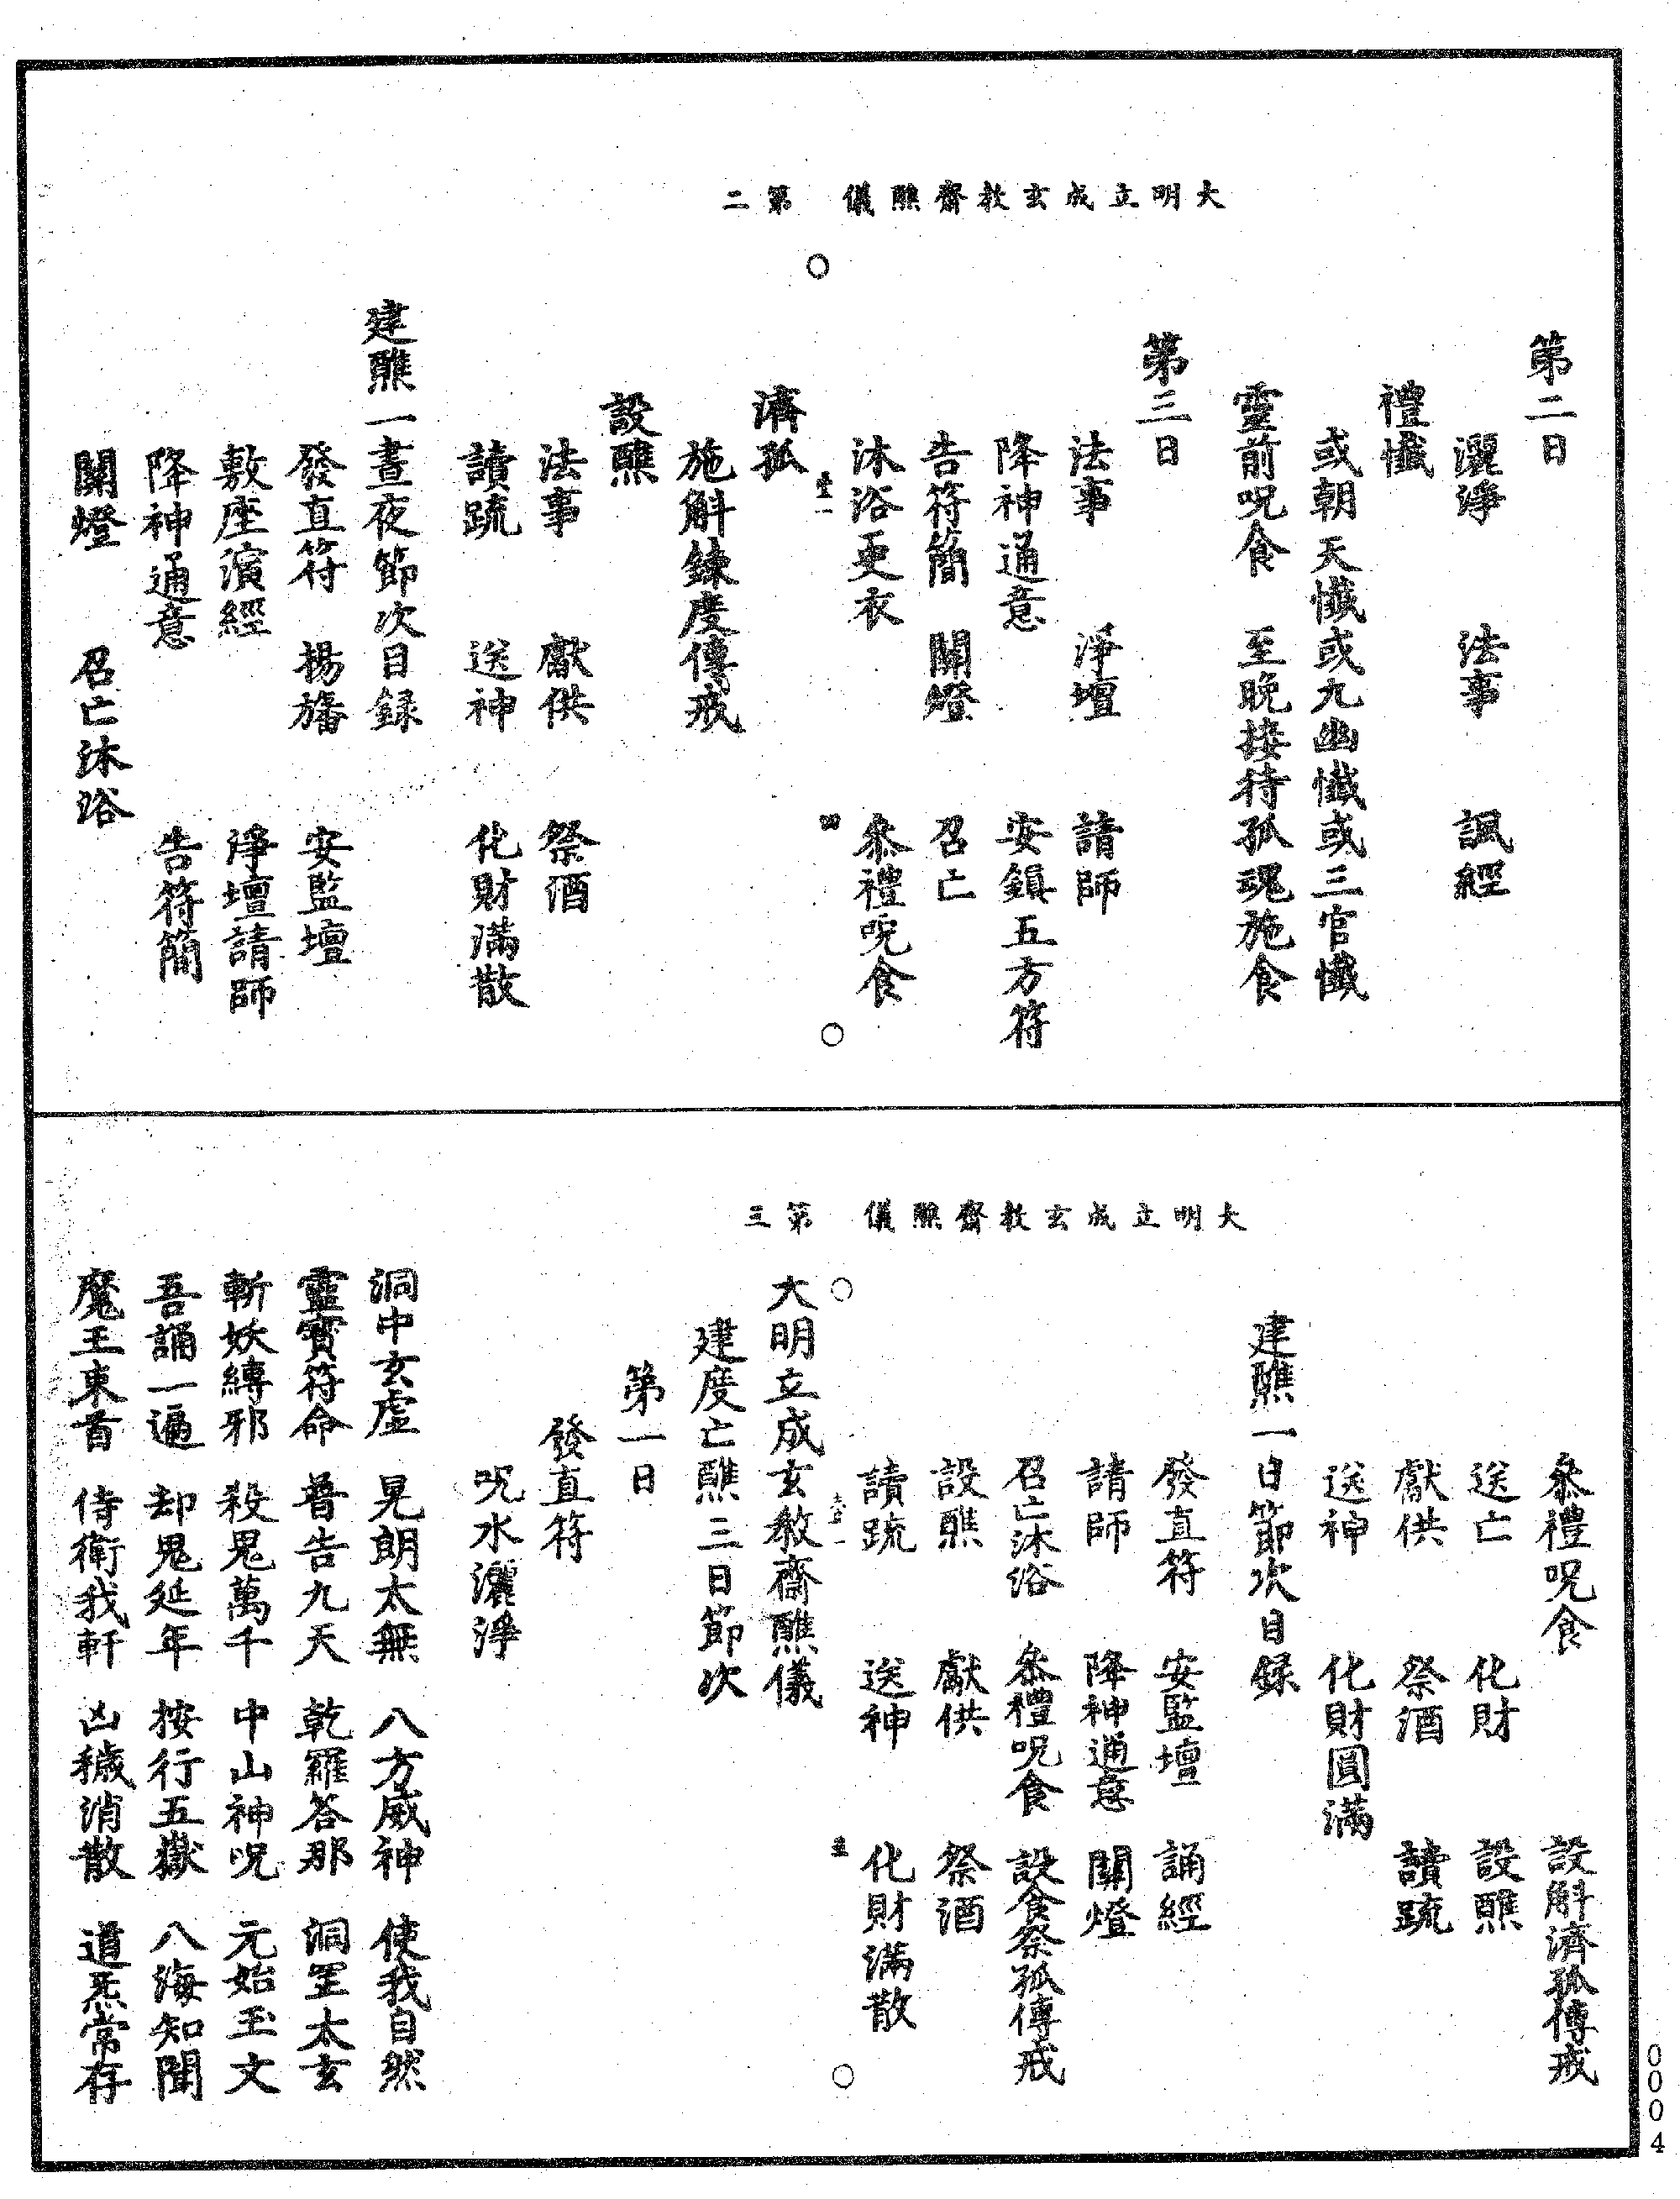 大明立成玄教齋醮儀　第二
第二日
灑淨　法事　諷經
禮懺
或朝天懺或九幽懺或三官懺
靈前呪食　至晚接待孤魂施食
第三日
法事　淨壇　請師
降神通意　安鎮五方符
告符簡　關燈　召亡
沐浴更衣　叅禮呪食
四
濟孤
施斛鍊度傳戒
設醮
法事　獻供　祭酒
讀䟽　送神　化財滿散
建醮一晝夜節次目録
發直符　揚旛　安監壇
敷座演經　淨壇請師
降神通意　告符簡
關燈　召亡沐浴
大明立成玄教齋醮儀　第三
叅禮呪食　設斛濟孤傳戒
送亡　化財　設醮
獻供　祭酒　讀䟽
送神　化財圓滿
建醮一日節次目録
發直符　安監壇　誦經
請師　降神通意　關燈
召亡沐浴　叅禮呪食　設食祭孤傳戒
設醮　獻供　祭酒
讀䟽　送神　化財滿散
大明立成玄教齋醮儀
建度亡醮三日節次
第一日
發直符
呪水灑淨
洞中玄虛　晃朗太無　八方威神　使我自然
靈寳符命　普告九天　乾羅答那　洞罡太玄
斬妖縛邪　殺鬼萬千　中山神呪　元始玉文
吾誦一遍　却鬼延年　按行五嶽　八海知聞
魔王束首　侍衛我軒　凶穢消散　道炁常存
0004